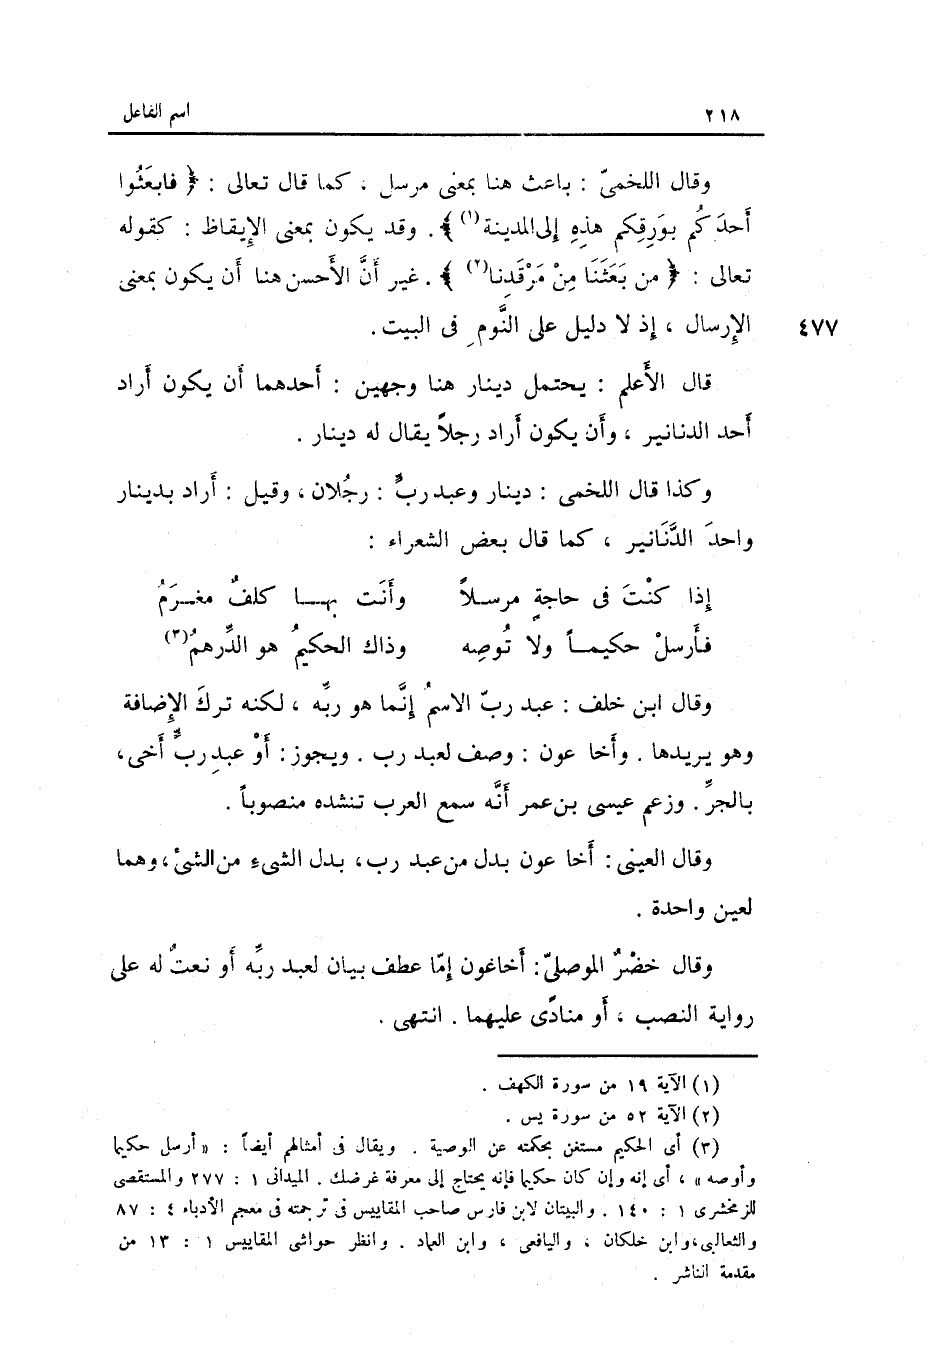 ٢١٨ اسم الفاعل
وقال اللخمىّ : باعث هنا بمعنى مرسل ، كما قال تعالى : ﴿ فابعَثُوا
أحدَكُم بوَرِقِكم هذِهِ إلى المدينة(١) ﴾ . وقد يكون بمعنى الإيقاظ : كقوله
تعالى : ﴿ من بَعَثَنَا مِنْ مَرْقَدِنا(٢) ﴾ . غير أنَّ الأحسن هنا أن يكون بمعنى
الإرسال ، إذ لا دليل على النَّومِ فى البيت . ٤٧٧
قال الأعلم : يحتمل دينار هنا وجهين : أحدهما أن يكون أراد
أحد الدنانير ، وأن يكون أراد رجلاً يقال له دينار .
وكذا قال اللخمى : دينار وعبد ربٍّ : رجُلان ، وقيل : أراد بدينار
واحدَ الدَّنَانير ، كما قال بعض الشعراء :
إذا كنْتَ فى حاجةٍ مرسلاً وأنَت بهـا كلفٌ مغـرَمُ
فأَرسلْ حكيمـاً ولا تُوصِه وذاك الحكيمُ هو الدِّرهمُ(٣)
وقال ابن خلف : عبد ربّ الاسمُ إنَّما هو ربِّه ، لكنه تركَ الإضافة
وهو يريدها . وأخا عون : وصف لعبد رب . ويجوز : أوْ عبدِ ربٍّ أخى ،
بالجرِّ . وزعم عيسى بن عمر أنَّه سمع العرب تنشده منصوباً .
وقال العينى : أخا عون بدل من عبد رب ، بدل الشىءِ من الشئ ، وهما
لعين واحدة .
وقال خضْرٌ الموصلىّ : أخاغون إمّا عطف بيان لعبد ربِّه أو نعتٌ له على
رواية النصب ، أو منادًى عليهما . انتهى .
(١) الآية ١٩ من سورة الكهف .
(٢) الآية ٥٢ من سورة يس .
(٣) أى الحكيم مستغن بحكمته عن الوصية . ويقال فى أمثالهم أيضاً : « أرسل حكيما
وأوصه » ، أى إنه وإن كان حكيما فإنه يحتاج إلى معرفة غرضك . الميدانى ١ : ٢٧٧ والمستقصى
للزمخشرى ١ : ١٤٠ . والبيتان لابن فارس صاحب المقاييس فى ترجمته فى معجم الأدباء ٤ : ٨٧
والثعالبى ، وابن خلكان ، واليافعى ، وابن العماد . وانظر حواشى المقاييس ١ : ١٣ من
مقدمة الناشر .